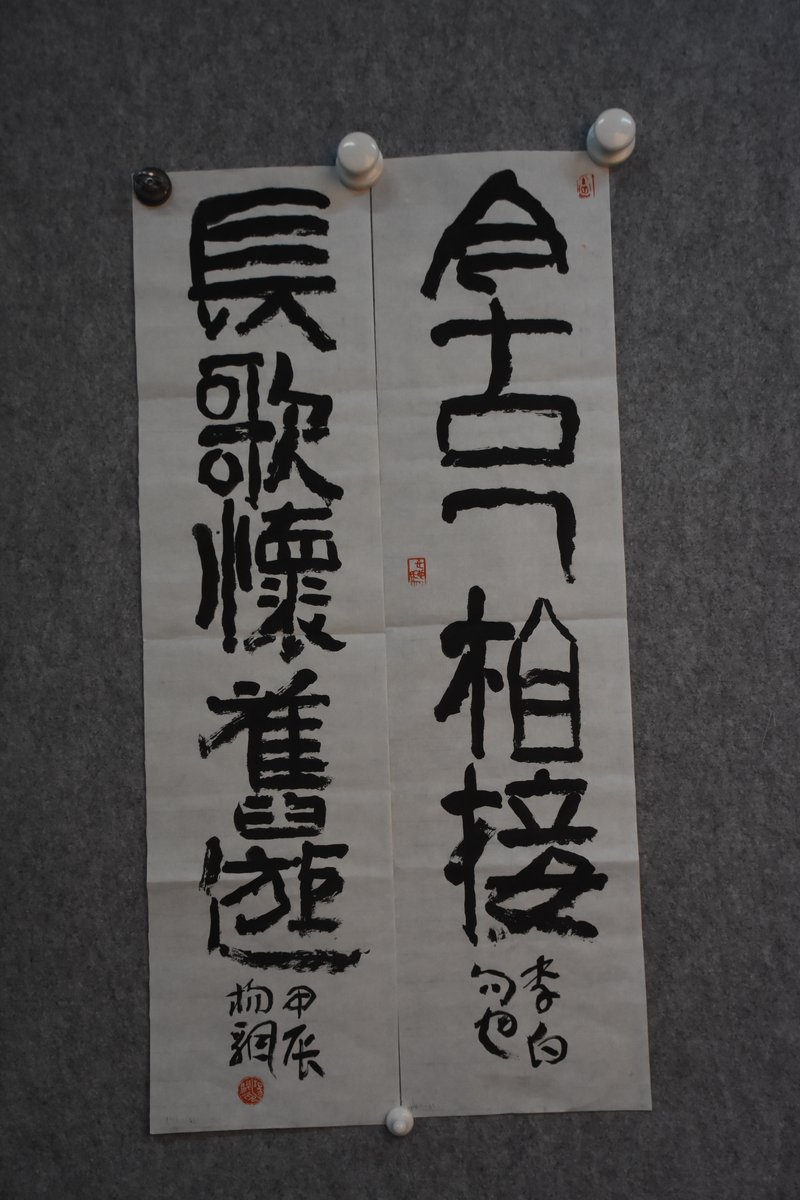 今古一相接
李白
句也
長歌懷舊遊
甲辰